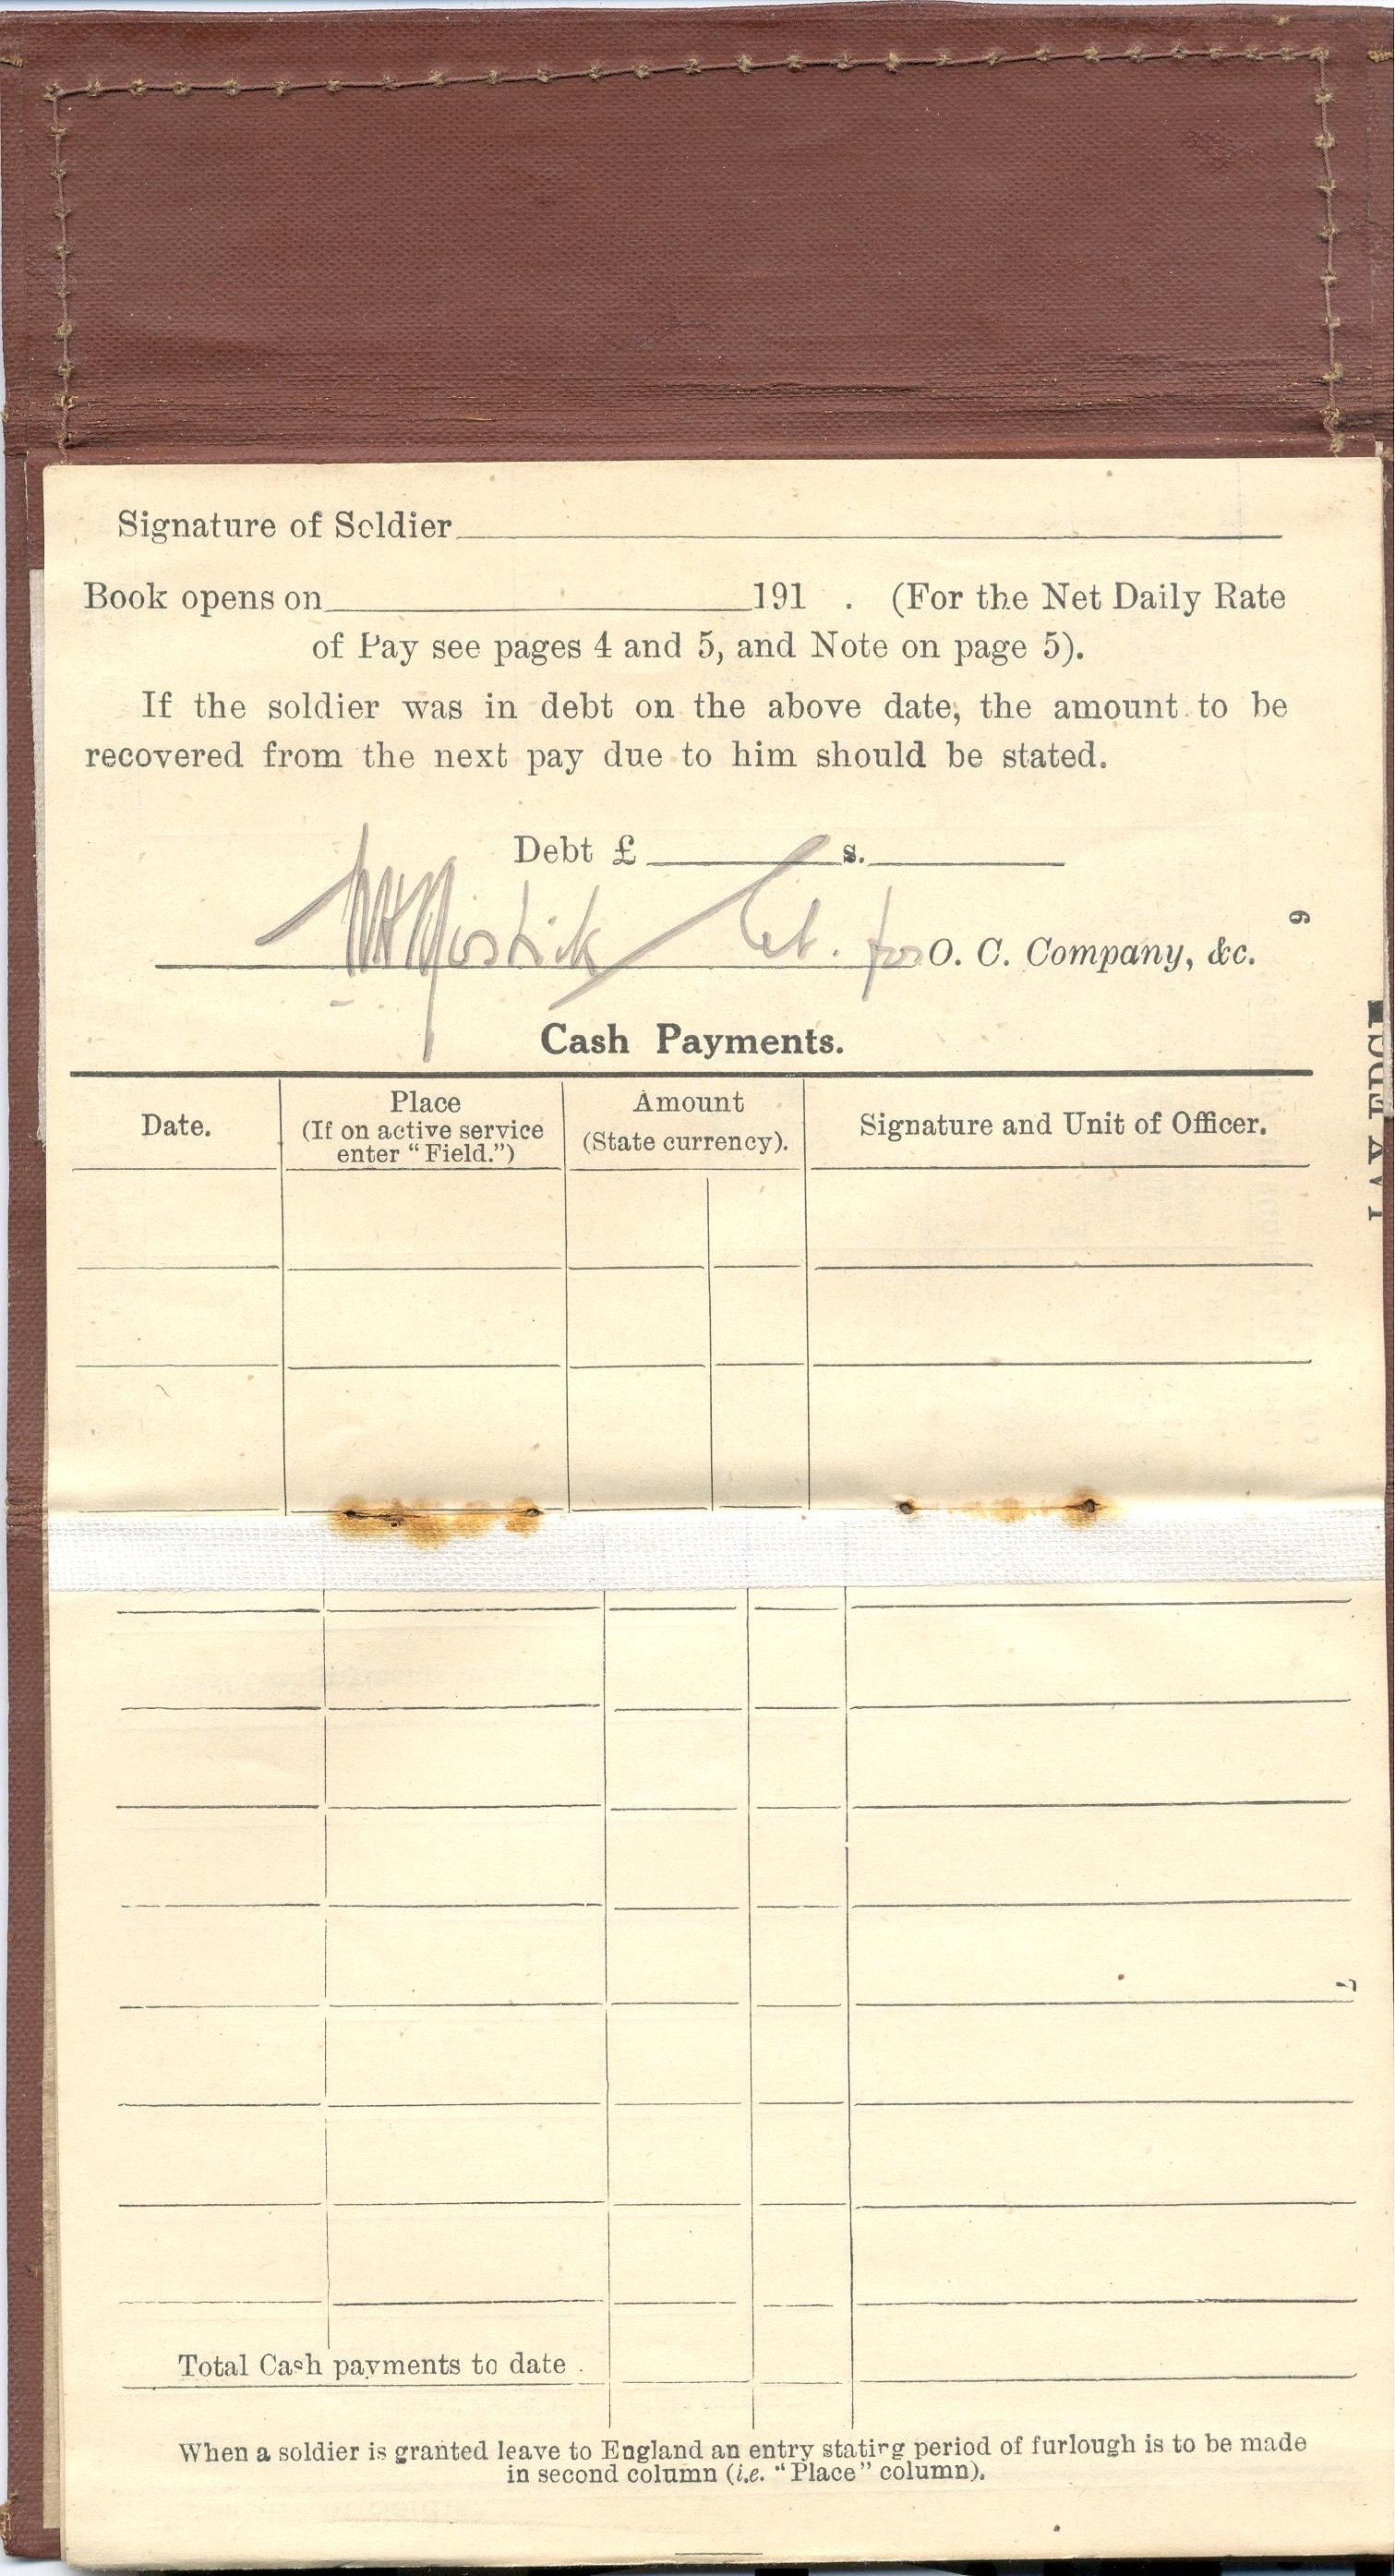 Signature of Soldier
Book opens on 191 . (For the Net Daily Rate
of Pay see pages 4 and 5, and Note on page 5).
If the soldier was in debt on the above date, the amount to be
recovered from the next pay due to him should be stated.
Debt £ s.
for O. C. Company, &c.
6
Cash Payments.
Date. Place (If on active service enter “Field.”) Amount (State currency). Signature and Unit of Officer.
7
Total Cash payments to date .
When a soldier is granted leave to England an entry stating period of furlough is to be made
in second column (i.e. “Place” column).